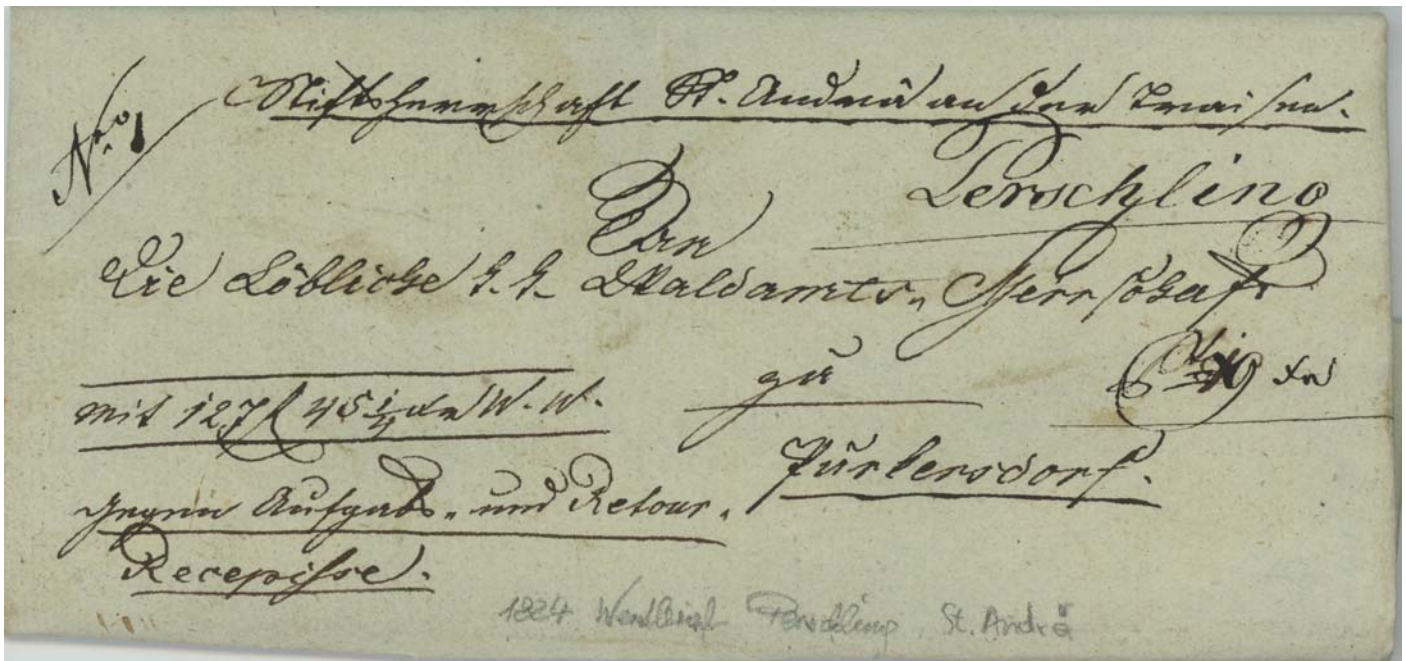 Nro 1
Stiftsherrschaft St. Andrä an der Traisen.
Perschling
An
Die Löbliche k. k. Waldamts„ Herrschaft
zu
mit 127 f 45 1/4 xr W. W.
Purkersdorf.
gegen Aufgabs„ und Retour„
Recepisse.
1824 Wertbrief Perschling, St. Andrä